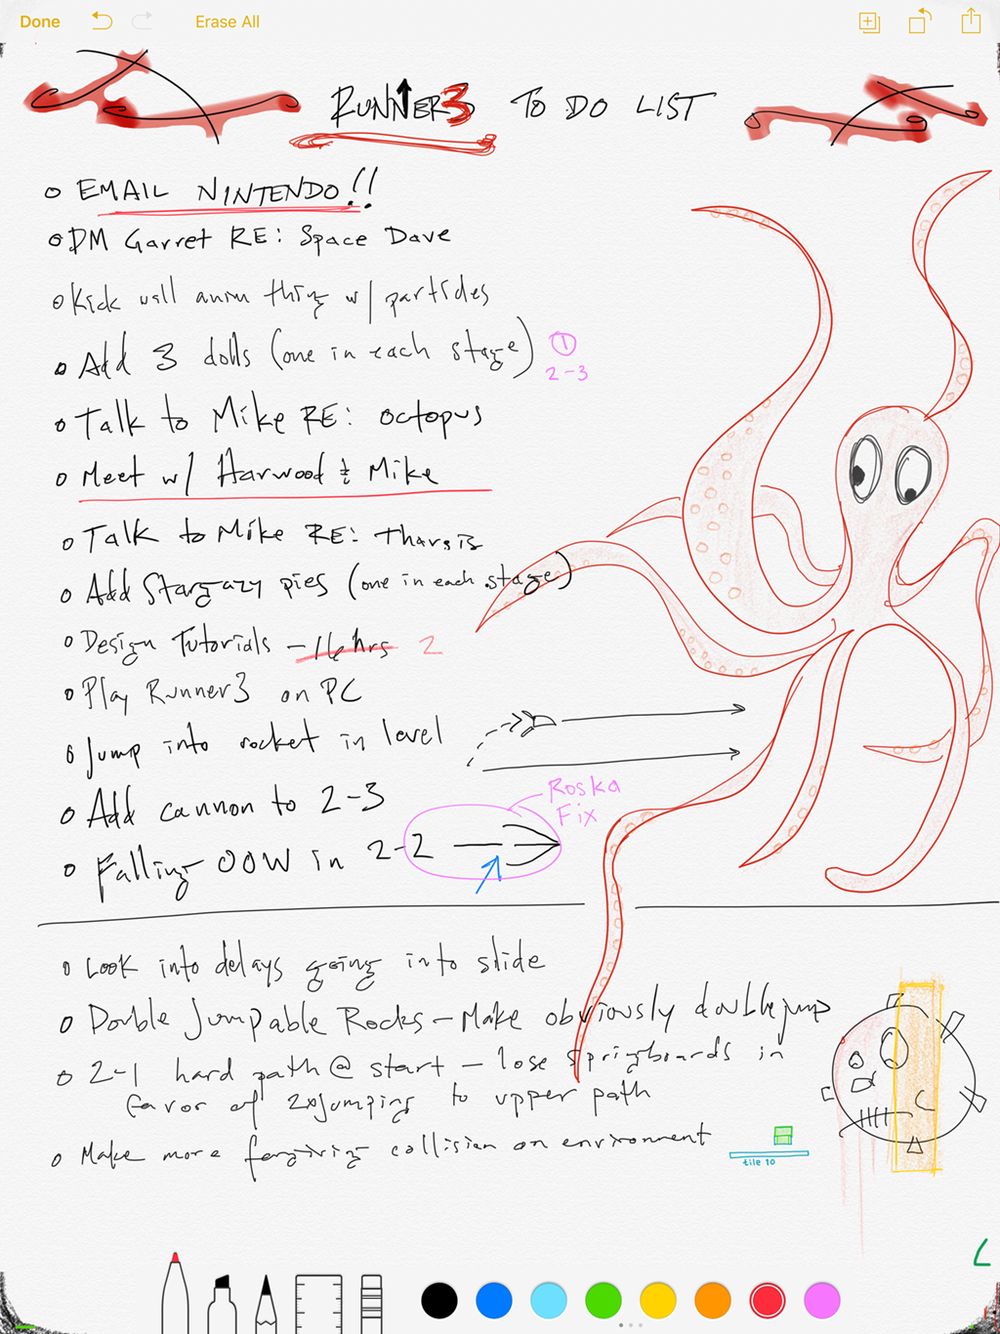 Done
Erase All
RUNNER3 TO DO LIST
EMAIL NINTENDO!!
DM Garret RE: Space Dave
Kick wall anim thing w/ particles
Add 3 dolls (one in each stage) 1
2-3
Talk to Mike RE: octopus
Meet w/ Harwood & Mike
Talk to Mike RE: Tharsis
Add Stargazy pies (one in each stage)
Design Tutorials - 16 hrs 2
Play Runner3 on PC
Jump into rocket in level
Roska
Fix
Add cannon to 2-3
Falling OOW in 2-2
Look into delays going into slide
Double Jumpable Rocks - Make obviously doublejump
2-1 hard path @ start - lose springboards in
favor of 2xjumping to upper path
Make more forgiving collision on environment
tile 10
L